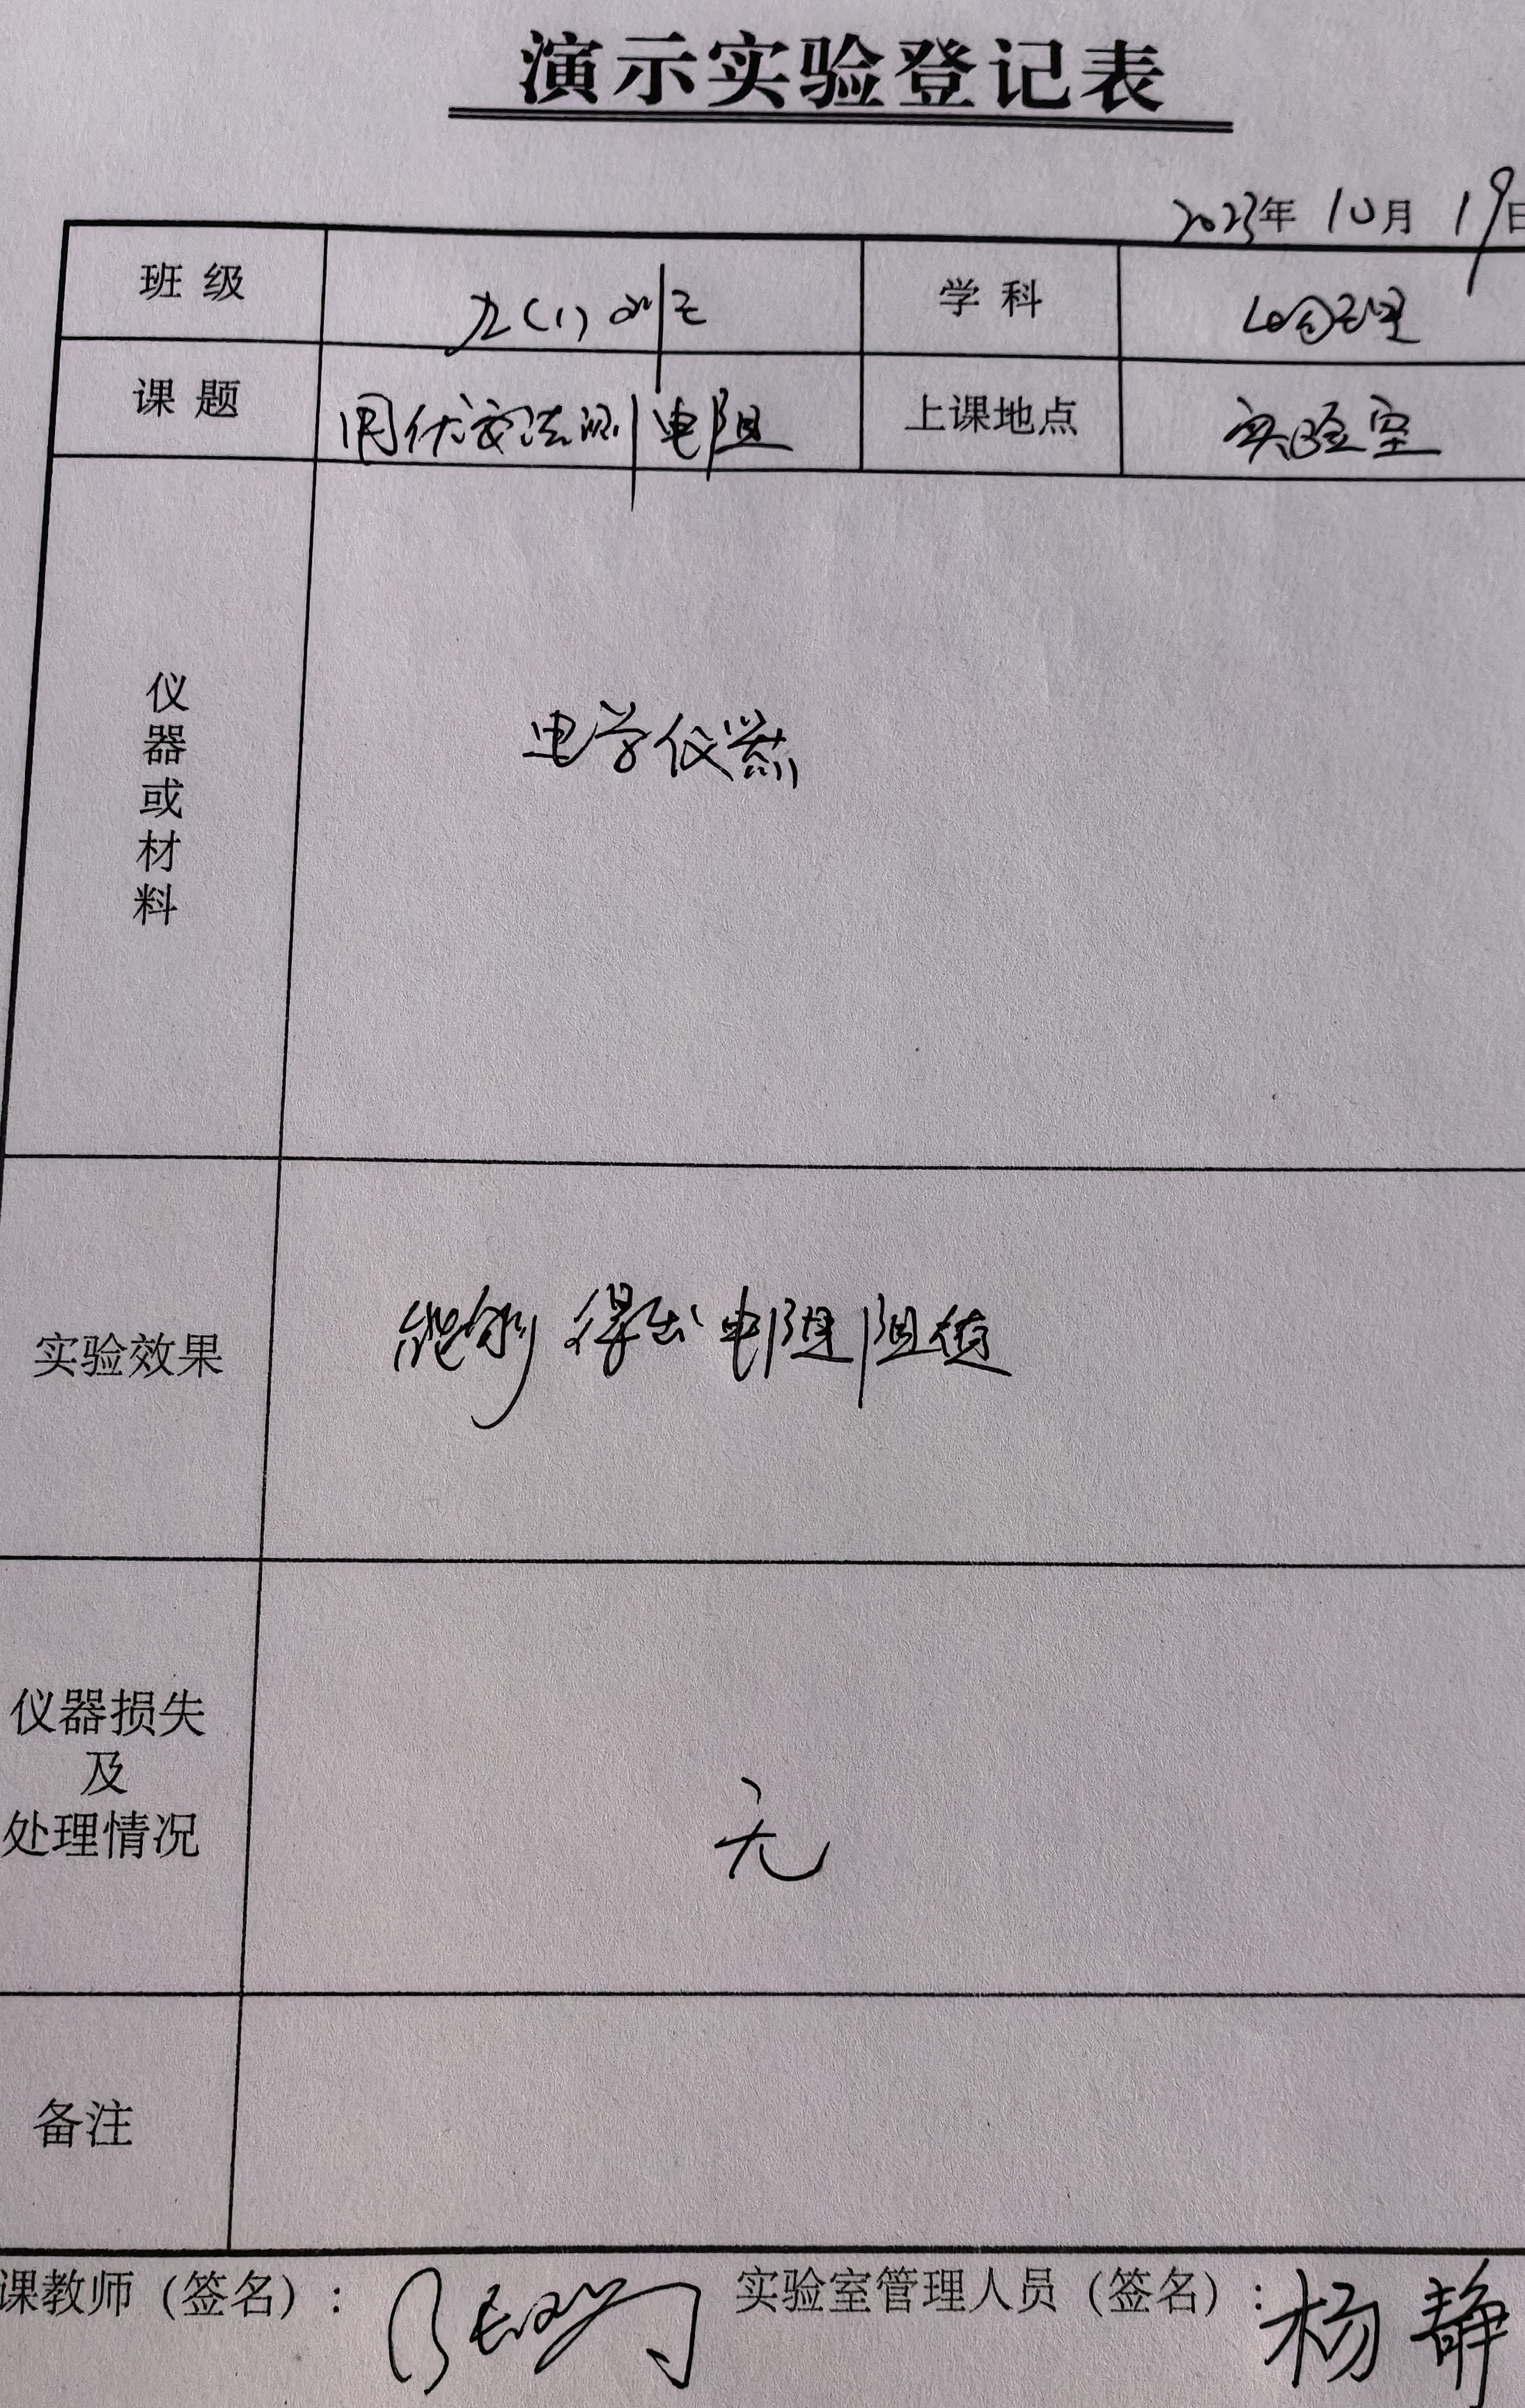 演示实验登记表
2023年 10月 19日
班级 九(1)班 学科 物理
课题 用伏安法测电阻 上课地点 实验室
仪器或材料 电学仪器
实验效果 能够得出电阻阻值
仪器损失及处理情况 无
备注
课教师（签名）： 实验室管理人员（签名）：杨静